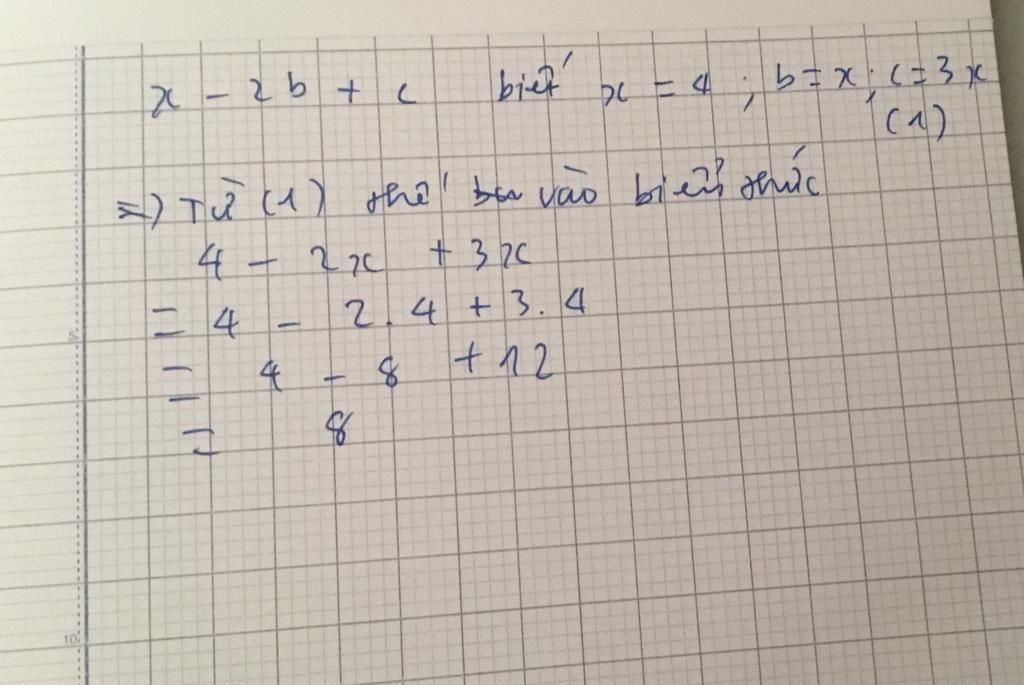 x - 2b + c biết x = 4 ; b = x ; c = 3x
(1)
=) Từ (1) thế vào biểu thức
4 - 2x + 3x
= 4 - 2.4 + 3.4
= 4 - 8 + 12
= 8
5
10